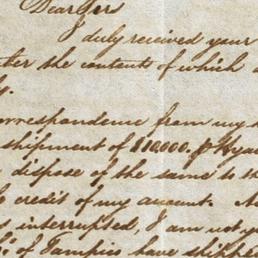 Dear Sir
I duly received your
the contents of which
correspondence from my
shipment of $10,000. p
dispose of the same to th
credit of my account.
interrupted, I am not y
of Tampico have shippe